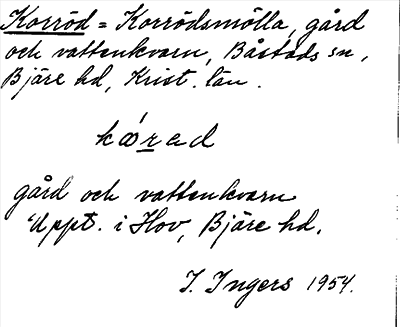 Korröd = Korrödsmölla, gård
och vattenkvarn, Båstads sn,
Bjäre hd, Krist. län.
gård och vattenkvarn
Uppt. i Hov, Bjäre hd.
I. Ingers 1954.